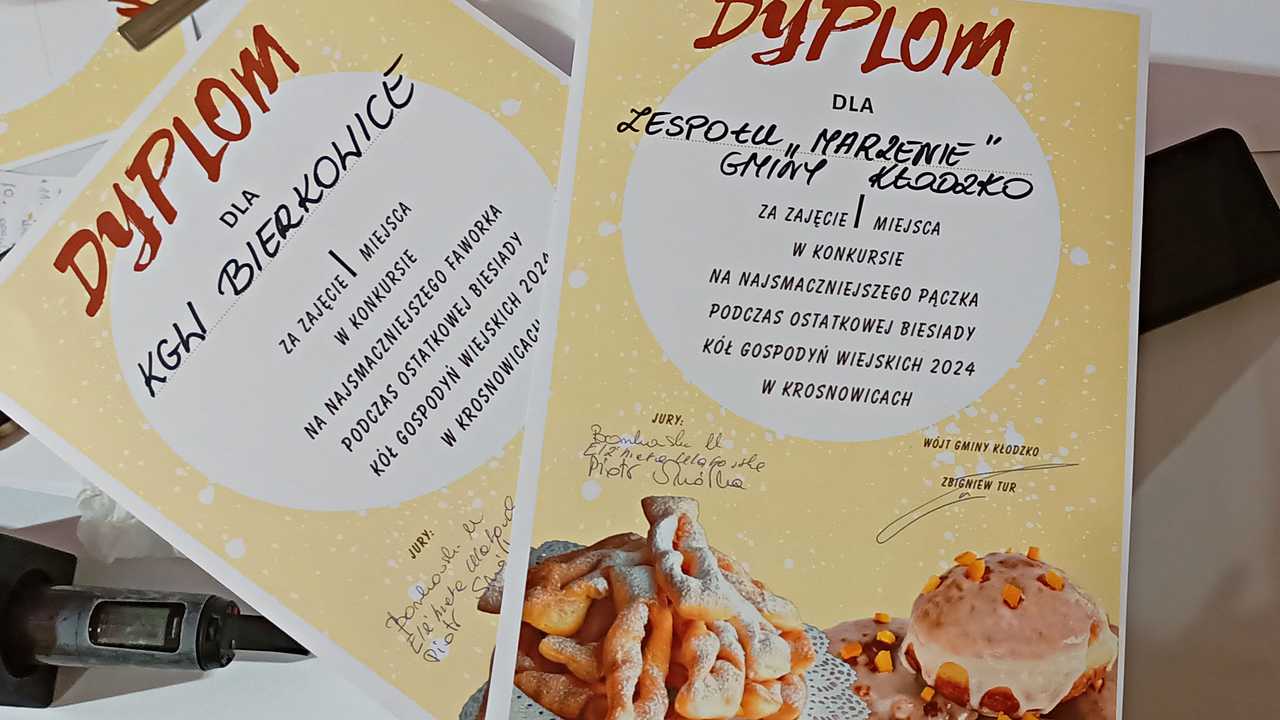 DYPLOM
DLA
KGW BIERKOWICE
ZA ZAJĘCIE I MIEJSCA
W KONKURSIE
NA NAJSMACZNIEJSZEGO FAWORKA
PODCZAS OSTATKOWEJ BIESIADY
KÓŁ GOSPODYŃ WIEJSKICH 2024
W KROSNOWICACH
JURY:
Piotr
DYPLOM
DLA
ZESPOŁU „MARZENIE”
GMINY KŁODZKO
ZA ZAJĘCIE I MIEJSCA
W KONKURSIE
NA NAJSMACZNIEJSZEGO PĄCZKA
PODCZAS OSTATKOWEJ BIESIADY
KÓŁ GOSPODYŃ WIEJSKICH 2024
W KROSNOWICACH
JURY:
Piotr
WÓJT GMINY KŁODZKO
ZBIGNIEW TUR